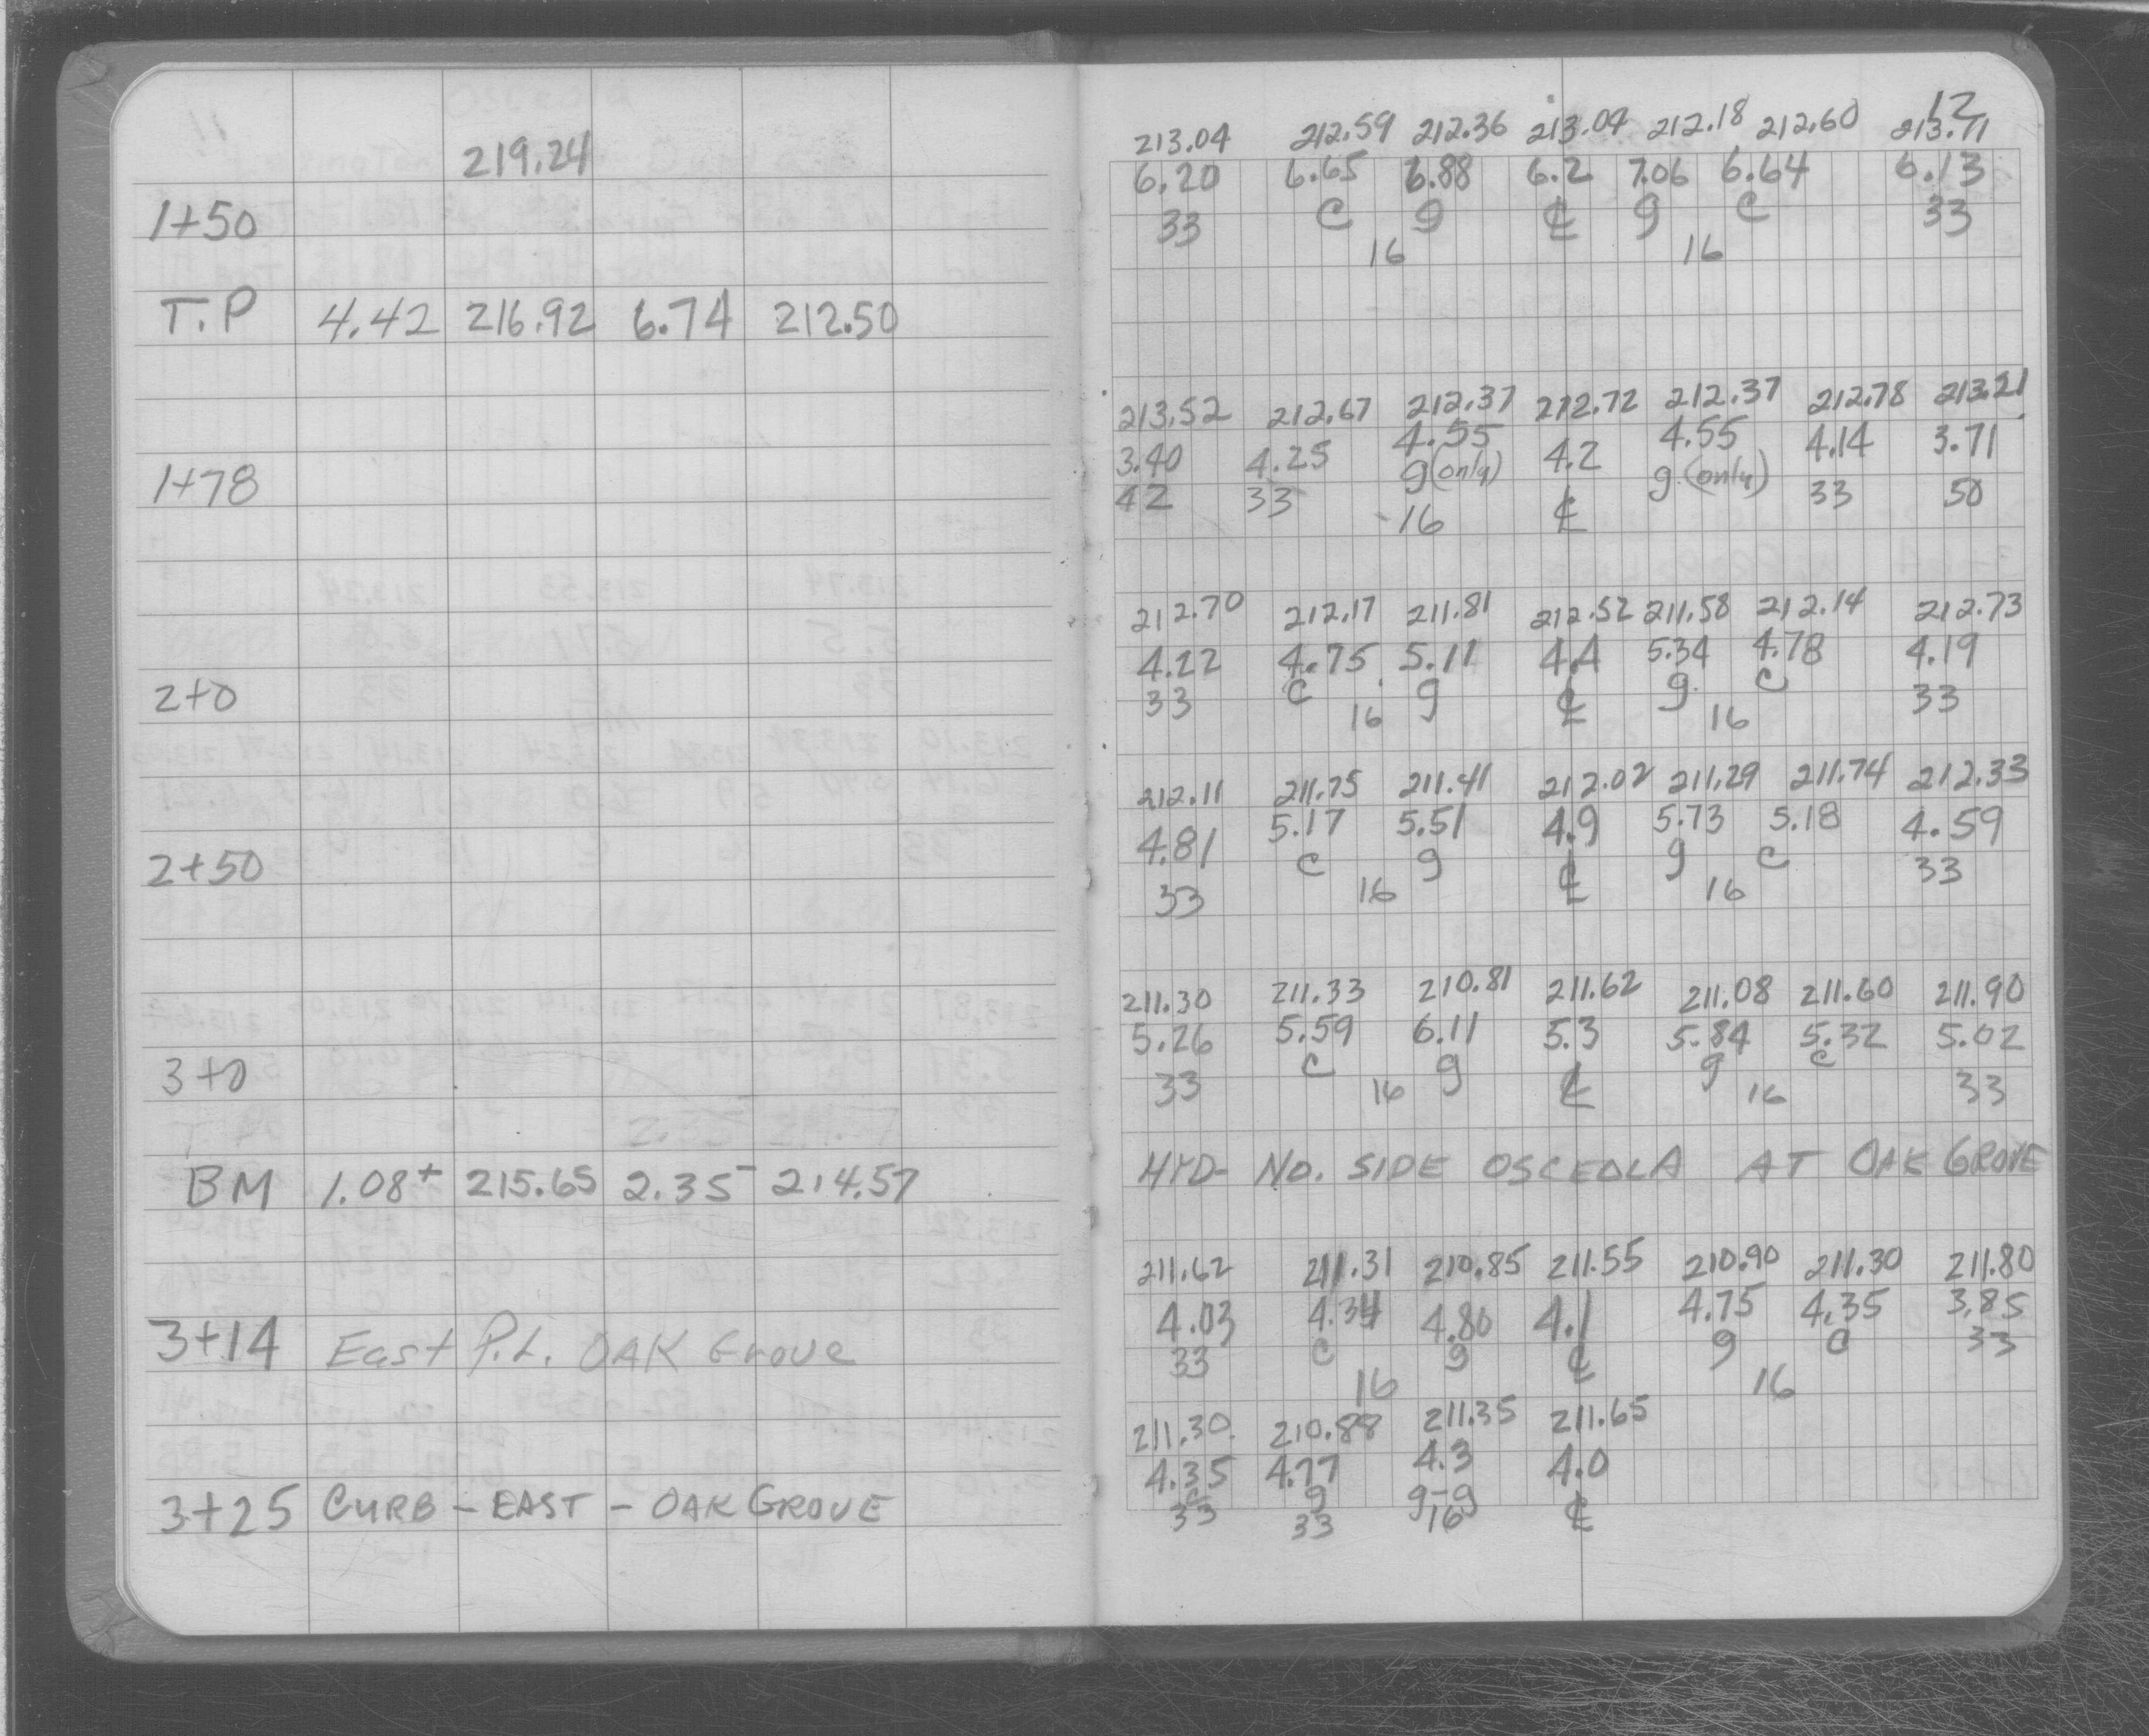 12
219.24
213.04 212.59 212.36 213.04 212.18 212.60 213.11
6.20 6.65 6.88 6.2 7.06 6.64 6.13
1+50
33 C g ℄ g C 33
16 16
T.P 4.42 216.92 6.74 212.50
213.52 212.67 212.37 212.72 212.37 212.78 213.21
3.40 4.25 4.55 4.2 4.55 4.14 3.71
1+78
42 33 g(only) ℄ g.(only) 33 50
-16
212.70 212.17 211.81 212.52 211.58 212.14 212.73
4.22 4.75 5.11 4.4 5.34 4.78 4.19
2+0
33 C g ℄ g. C 33
16 16
212.11 211.75 211.41 212.02 211.29 211.74 212.33
4.81 5.17 5.51 4.9 5.73 5.18 4.59
2+50
33 C g ℄ g C 33
16 16
211.30 211.33 210.81 211.62 211.08 211.60 211.90
5.26 5.59 6.11 5.3 5.84 5.32 5.02
3+0
33 C g ℄ g C 33
16 16
BM 1.08+ 215.65 2.35- 214.57
HYD- NO. SIDE OSCEOLA AT OAK GROVE
211.62 211.31 210.85 211.55 210.90 211.30 211.80
4.03 4.34 4.80 4.1 4.75 4.35 3.85
3+14 East P.L. OAK Grove
33 C g ℄ g C 33
16 16
211.30 210.88 211.35 211.65
4.35 4.77 4.3 4.0
3+25 CURB - EAST - OAK GROVE
C g g-g ℄
33 33 16